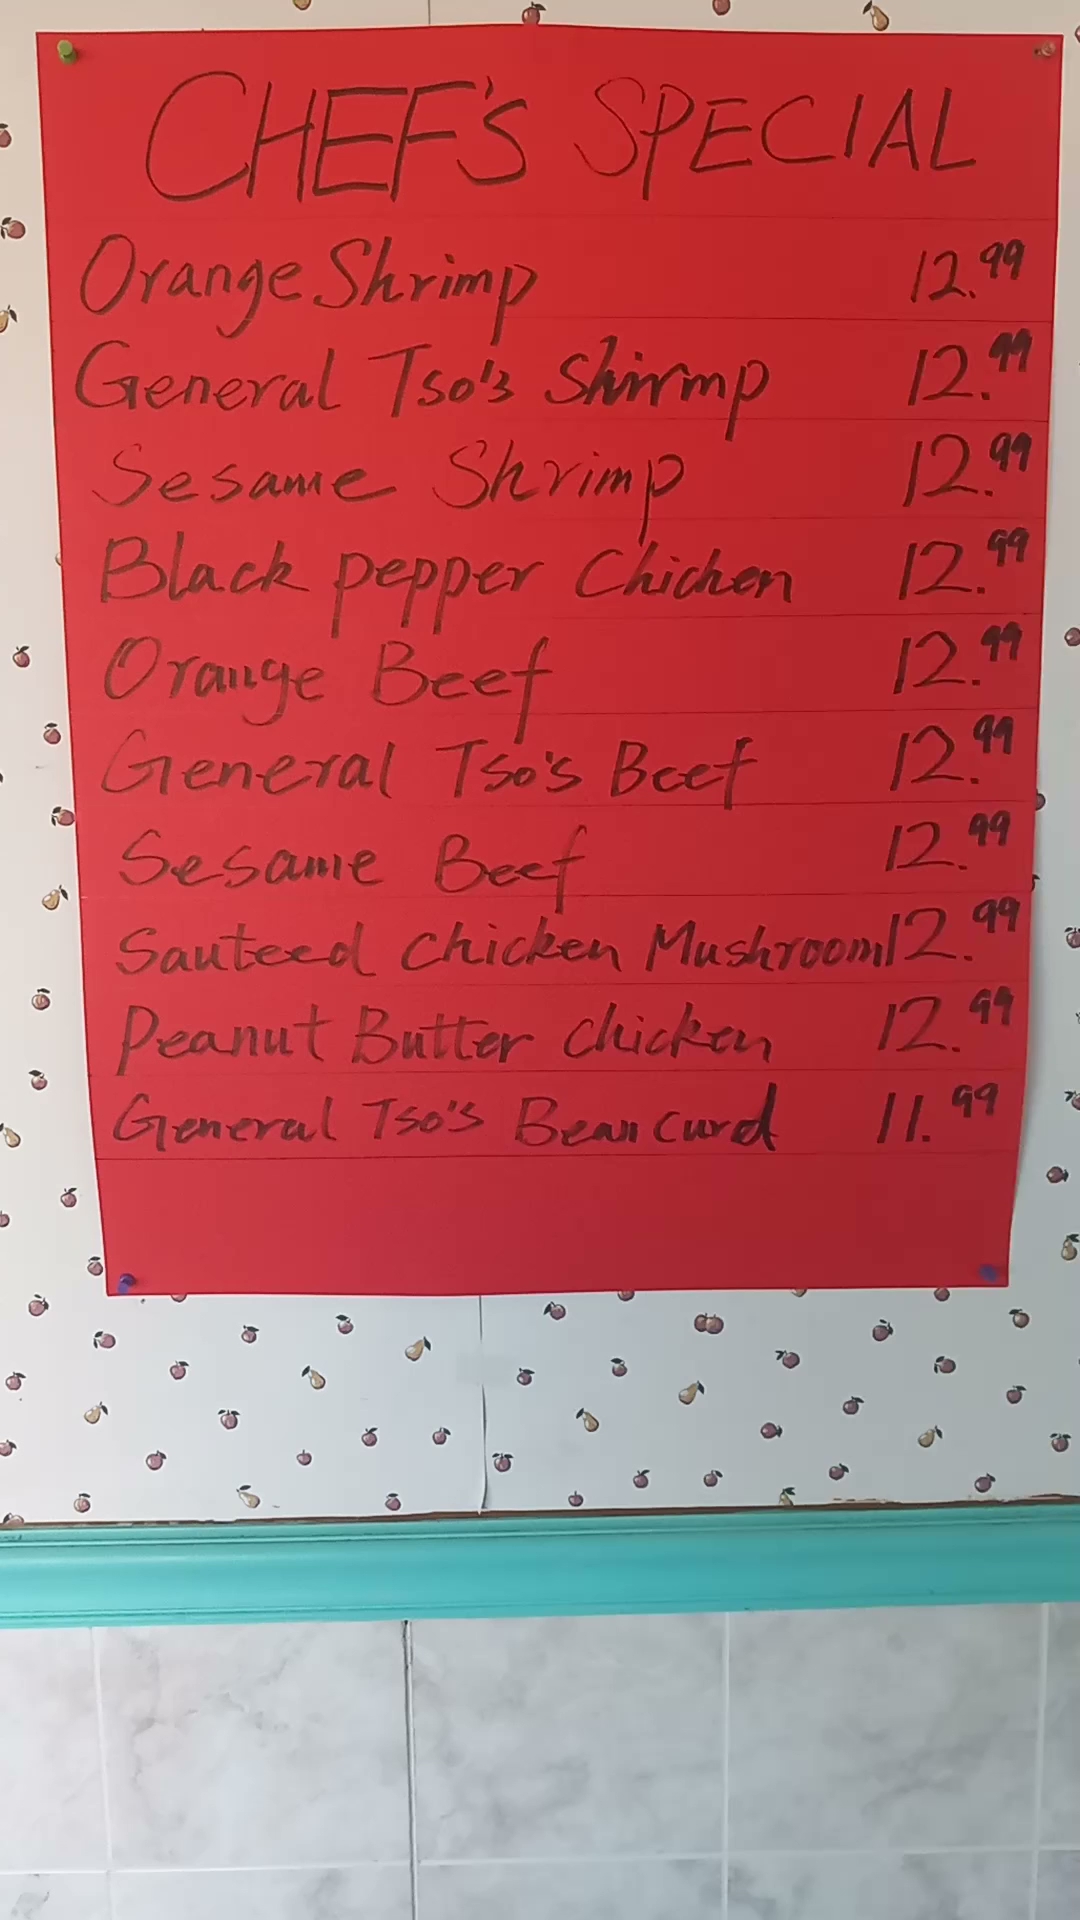 CHEF'S SPECIAL
Orange Shrimp 12.99
General Tso's Shrimp 12.99
Sesame Shrimp 12.99
Black pepper Chicken 12.99
Orange Beef 12.99
General Tso's Beef 12.99
Sesame Beef 12.99
Sauteed Chicken Mushroom 12.99
Peanut Butter Chicken 12.99
General Tso's Bean curd 11.99